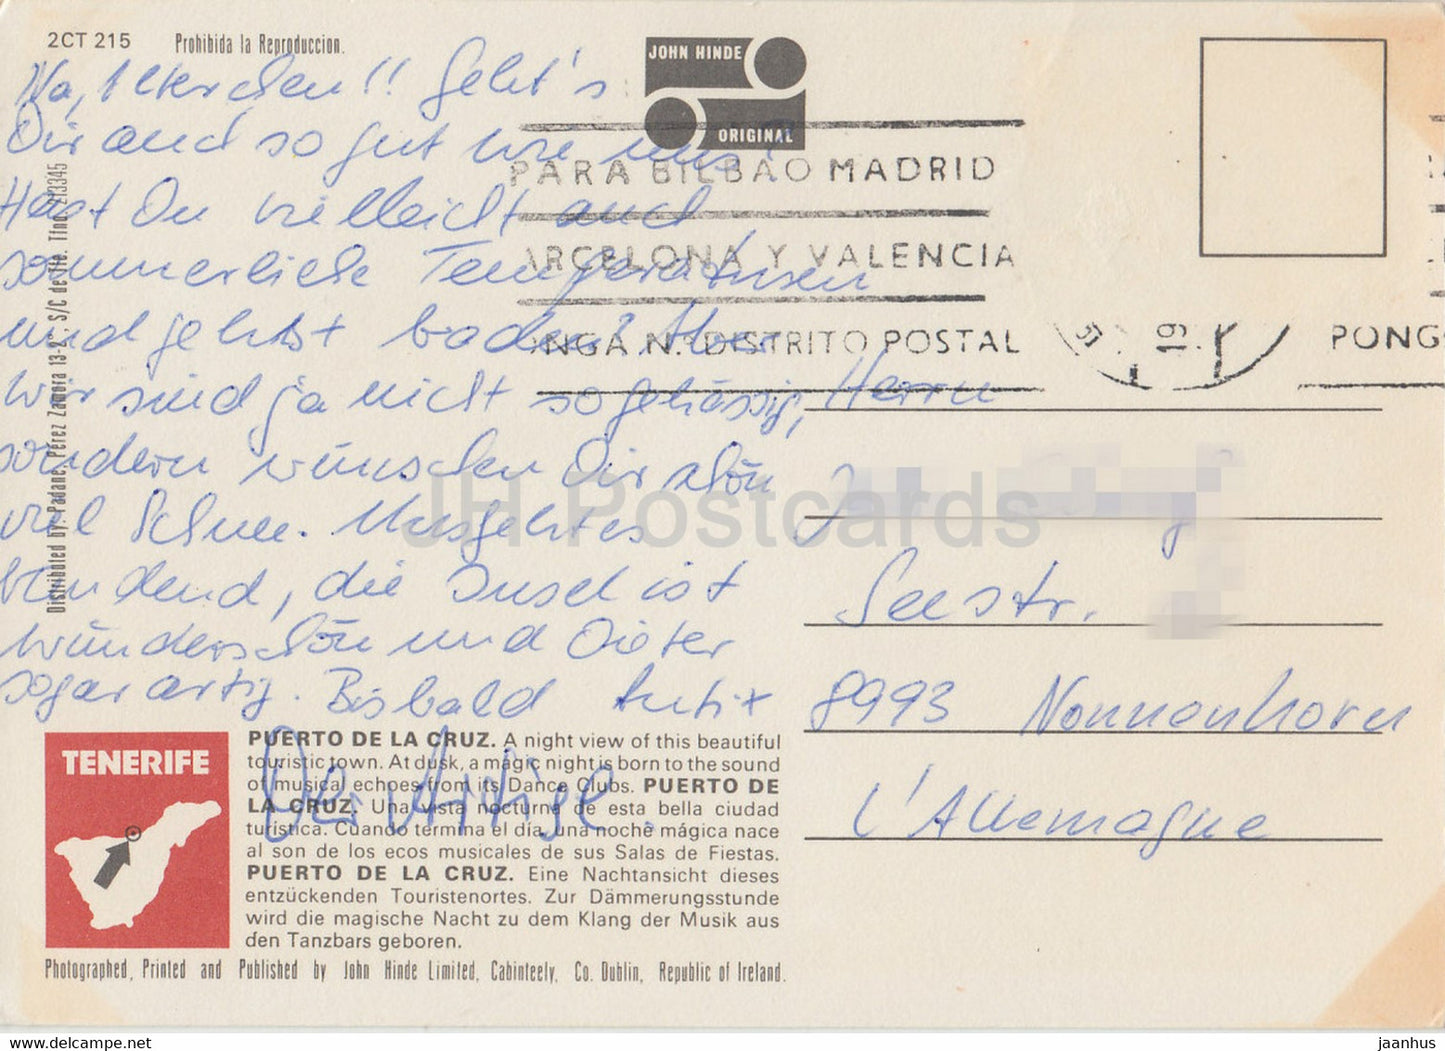 2CT 215 Prohibida la Reproduccion.
JOHN HINDE
ORIGINAL
Na, Alterchen!! Geht's
Dir auch so gut wie uns?
Hast Du vielleicht auch
sommerliche Temperaturen
und gehst baden? Aber
wir sind ja nicht so gehässig,
sondern wünschen Dir schön
viel Schnee. Ausgehtes
, die Insel ist
wunderschön und Dieter
sogar artig. Bis bald
Der Artige.
PARA BILBAO MADRID
ARCELONA Y VALENCIA
ONGA N.º DISTRITO POSTAL
PONG
Herrn
J
Seestr.
8993 Nonnenhorn
L'Allemagne
Distributed by: Padane, Pérez Zamora 13-2°, S/C de Tfe. Tfno. 213345
JH Postcards
TENERIFE
PUERTO DE LA CRUZ. A night view of this beautiful
touristic town. At dusk, a magic night is born to the sound
of musical echoes from its Dance Clubs. PUERTO DE
LA CRUZ. Una vista nocturna de esta bella ciudad
turística. Cuando termina el día, una noche mágica nace
al son de los ecos musicales de sus Salas de Fiestas.
PUERTO DE LA CRUZ. Eine Nachtansicht dieses
entzückenden Touristenortes. Zur Dämmerungsstunde
wird die magische Nacht zu dem Klang der Musik aus
den Tanzbars geboren.
Photographed, Printed and Published by John Hinde Limited, Cabinteely, Co. Dublin, Republic of Ireland.
hippostcard.com
jaanhus